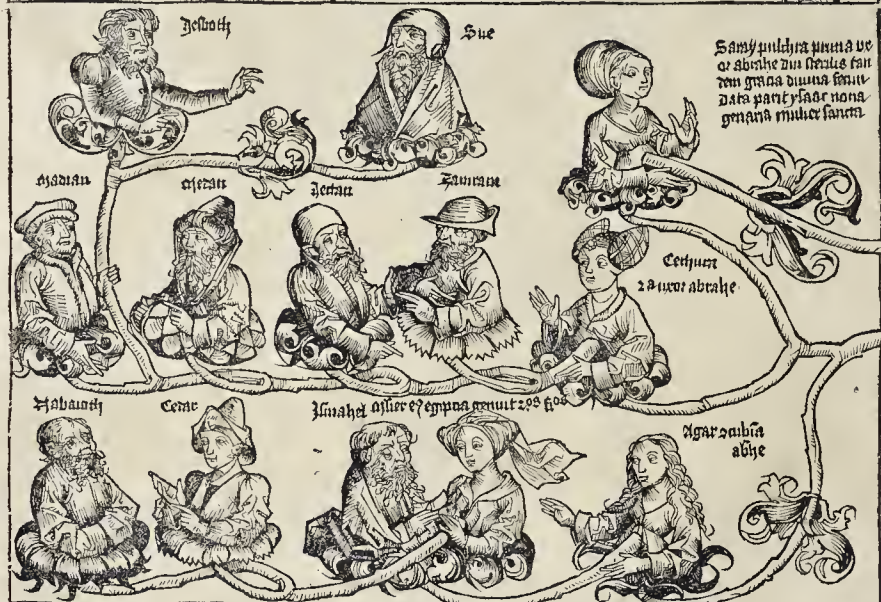 Jesboth
Sue
Saray pulchra prima vx
or abrahe diu sterilis tan
dem gracia diuina fecun
data parit ysaac nona
genaria mulier sancta
Madian
Medan
Jectan
Zamram
Cethura
2a uxor abrahe
Nabaioth
Cedar
Ismahel egiptia genuit
Agar ɔcubīa
abhe